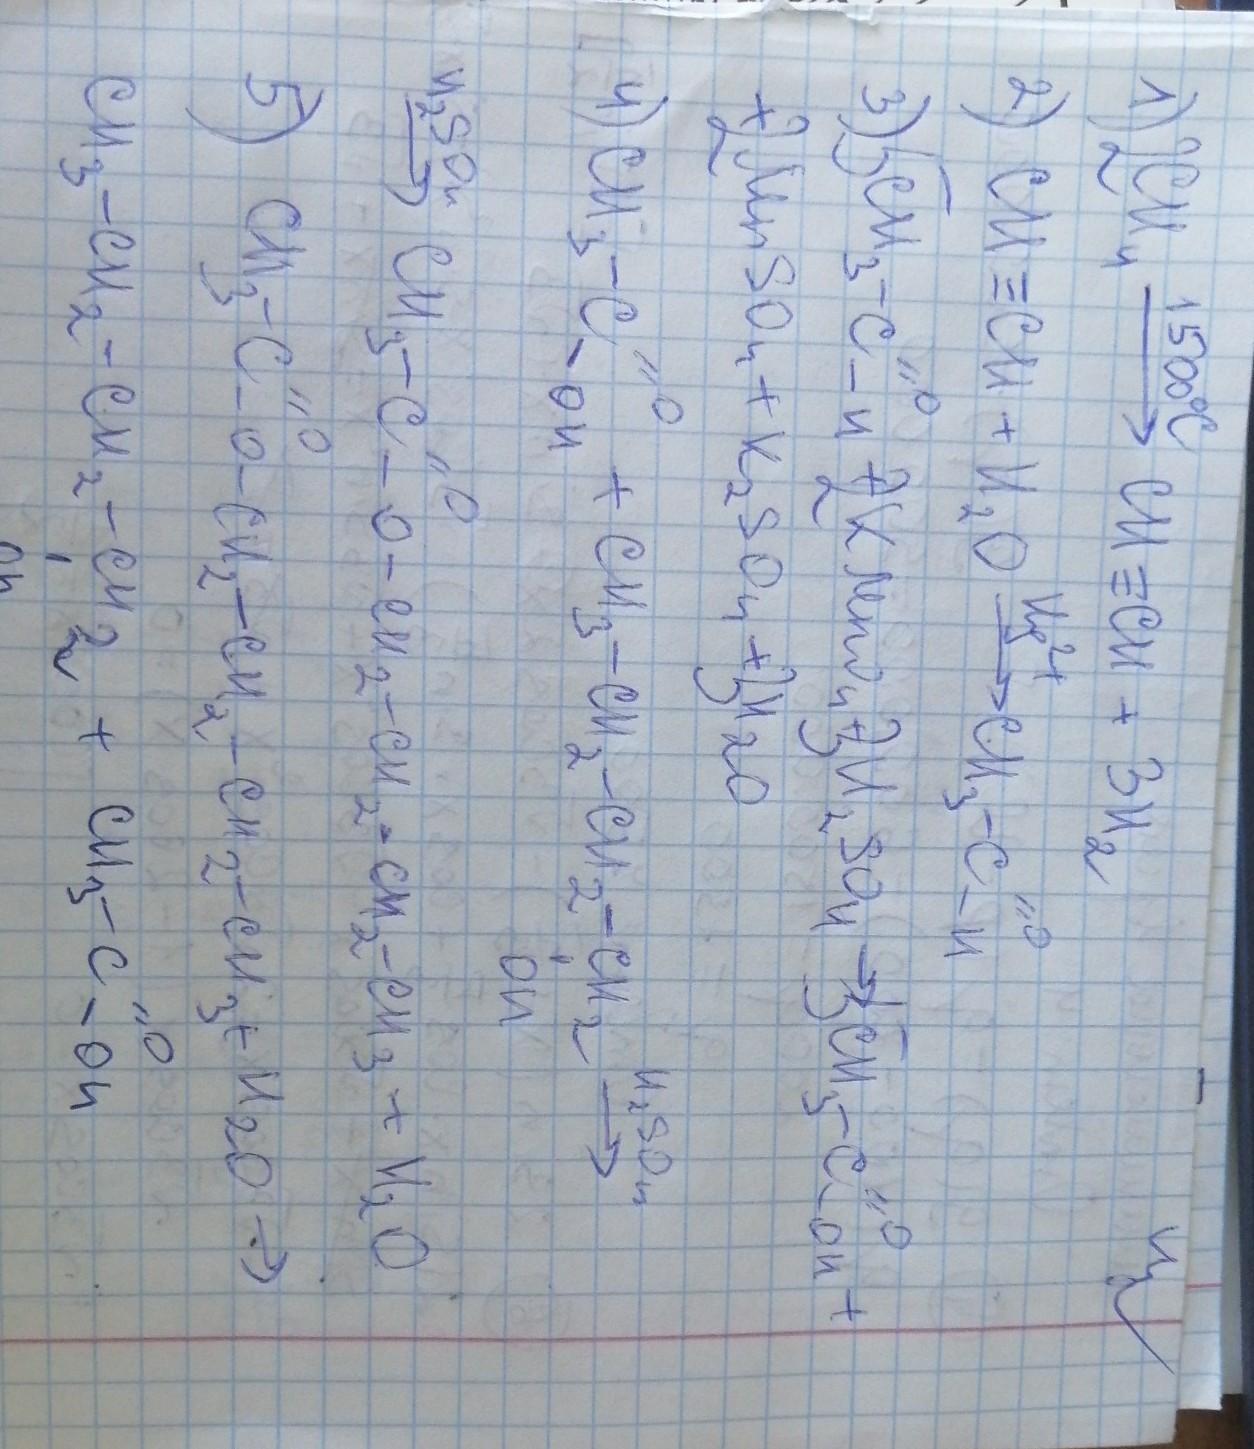 1) 2CH₄ 1500°C → CH≡CH + 3H₂
2) CH≡CH + H₂O Hg²⁺ → CH₃-C=O-H
3) 5CH₃-C=O-H + 2KMnO₄ + 3H₂SO₄ → 5CH₃-C=O-OH +
+ 2MnSO₄ + K₂SO₄ + 3H₂O
4) CH₃-C=O-OH + CH₃-CH₂-CH₂-CH₂-OH H₂SO₄ →
H₂SO₄ → CH₃-C=O-O-CH₂-CH₂-CH₂-CH₃ + H₂O
5) CH₃-C=O-O-CH₂-CH₂-CH₂-CH₃ + H₂O →
CH₃-CH₂-CH₂-CH₂-OH + CH₃-C=O-OH